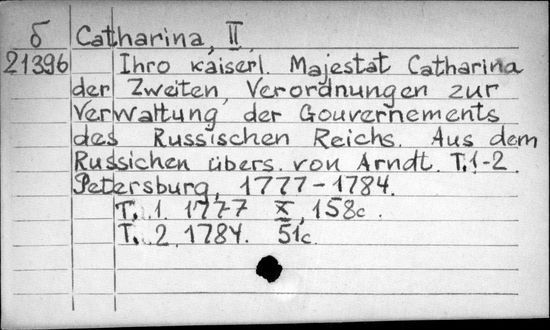 б Catharina, II
21396 Ihro kaiserl. Majestat Catharina
der Zweiten, Verordnungen zur
Verwaltung der Gouvernements
des Russischen Reichs. Aus dem
Russichen übers. von Arndt. T. 1-2.
Petersburg, 1777-1784.
T. 1. 1777 X, 158c.
T. 2. 1784. 51c.